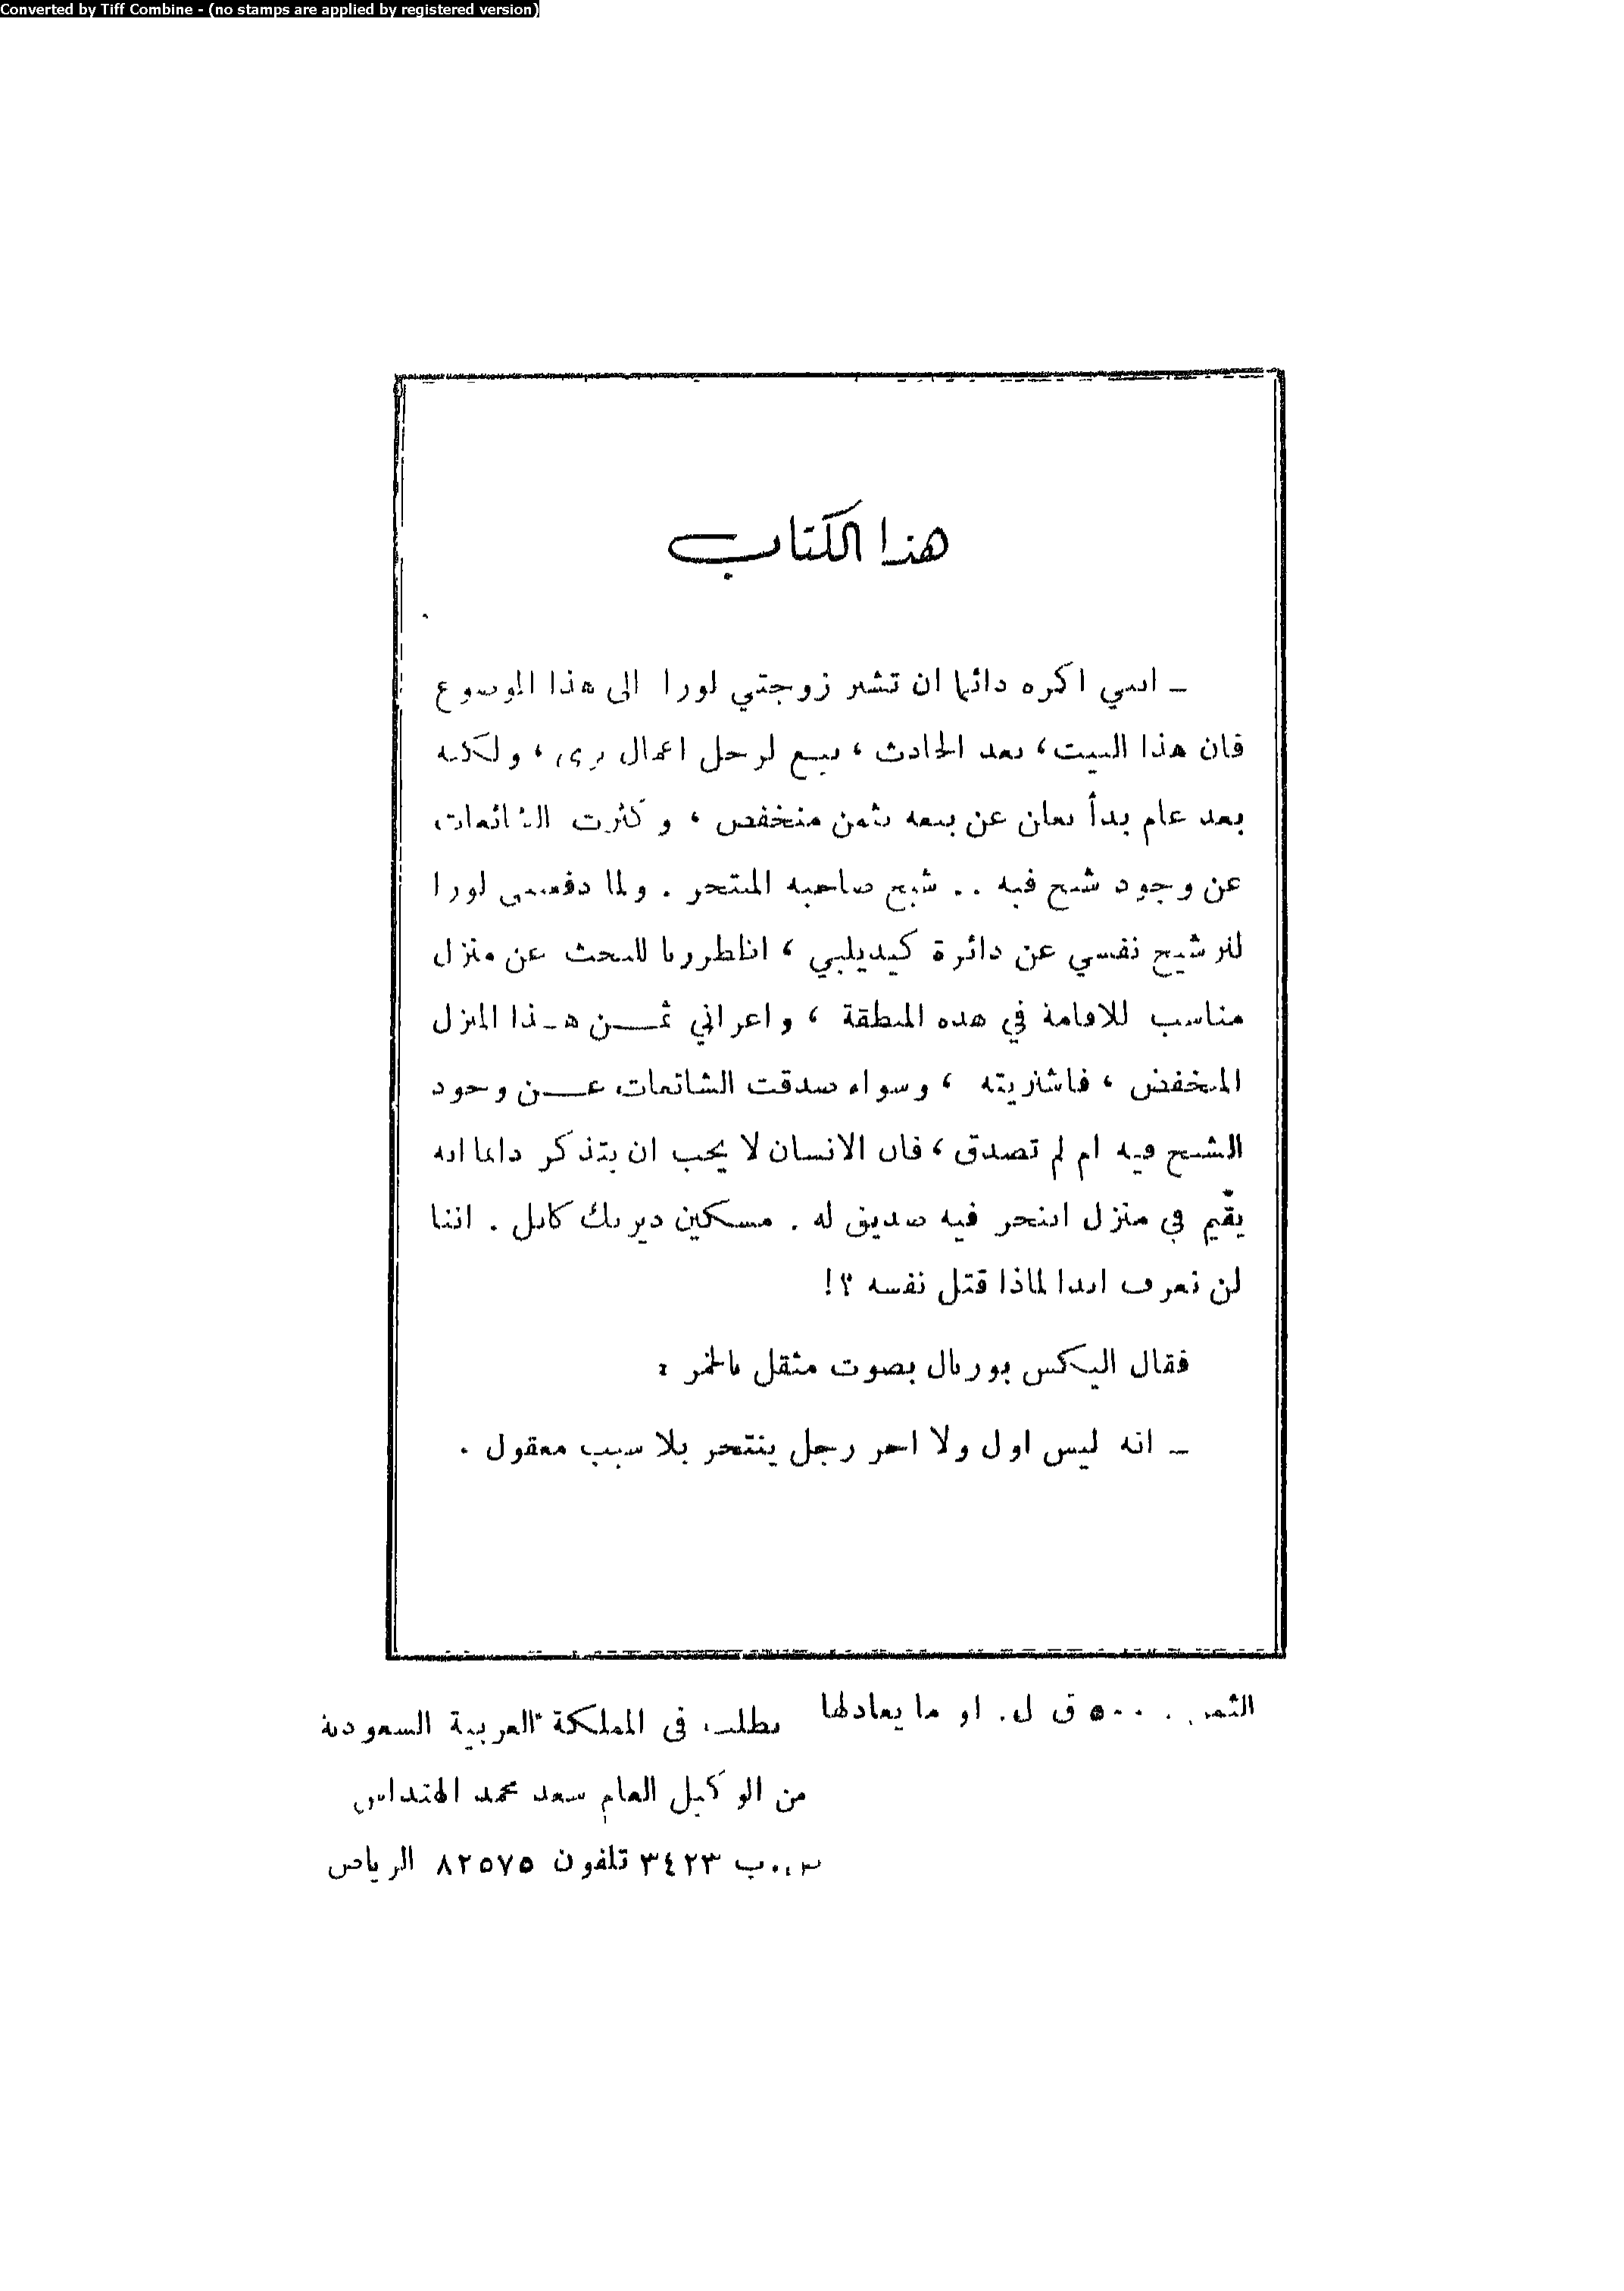 Converted by Tiff Combine - (no stamps are applied by registered version)
هذا الكتاب
ـ انني اكره دائما ان تشير زوجتي لورا الى هذا الموضوع
فان هذا البيت، بعد الحادث، بيع لرجل اعمال ثري، ولكنه
بعد عام بدأ يعلن عن بيعه بثمن منخفض، وكثرت الشائعات
عن وجود شبح فيه .. شبح صاحبه المنتحر . ولما دفعتني لورا
لترشيح نفسي عن دائرة كيديلبي، اضطررنا للبحث عن منزل
مناسب للاقامة في هذه المنطقة، واغراني ثمـن هـذا المنزل
المنخفض، فاشتريته، وسواء صدقت الشائعات عـن وجود
الشبح فيه ام لم تصدق، فان الانسان لا يحب ان يتذكر دائما انه
يقيم في منزل انتحر فيه صديق له . مسكين ديريك كابل . اننا
لن نعرف ابدا لماذا قتل نفسه ؟!
فقال اليكس بورتال بصوت مثقل بالخمر :
ـ انه ليس اول ولا اخر رجل ينتحر بلا سبب معقول .
الثمن ٥٠٠ ق ل. او ما يعادلها
يطلب في المملكة العربية السعودية
من الوكيل العام سعد محمد الهنداس
ص.ب ٣٤٢٣ تلفون ٨٢٥٧٥ الرياض